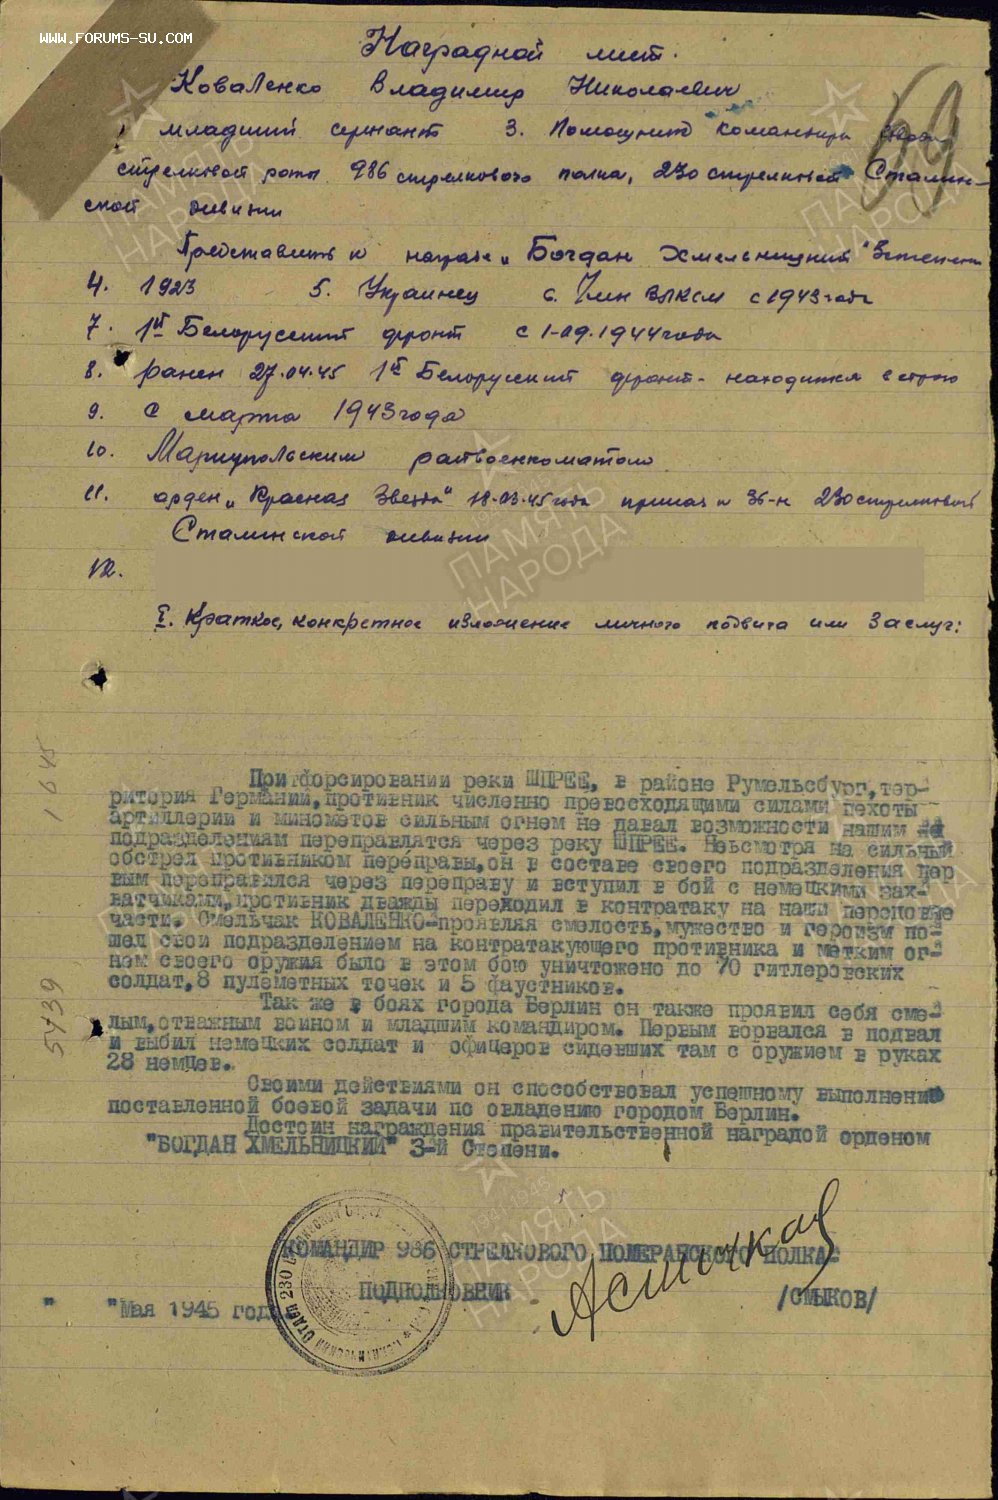 WWW.FORUMS-SU.COM
Наградной лист.
69
Коваленко Владимир Николаевич
младший сержант 3. Помощник командира
стрелковой роты 986 стрелкового полка, 230 стрелковой Сталин-
ской дивизии
Представить к награде „Богдан Хмельницкий" 3 степени
4. 1923 5. Украинец 6. Член ВЛКСМ с 1943 года
7. 1й Белорусский фронт с 1-09.1944 года
8. ранен 27.04.45 1й Белорусский фронт - находится в строю
9. с марта 1943 года
10. Мариупольским райвоенкоматом
11. орден „Красная Звезда" 18.03.45 года приказ № 36-н 230 стрелковой
Сталинской дивизии
12.
I. Краткое, конкретное изложение личного подвига или заслуг:
При форсировании реки ШПРЕЕ, в районе Румельсбург, тер-
ритория Германии, противник численно превосходящими силами пехоты
артиллерии и минометов сильным огнем не давал возможности нашим
подразделениям переправлятся через реку ШПРЕЕ. Невсмотря на сильный
обстрел противником переправы, он в составе своего подразделения пер
вым переправился через переправу и вступил в бой с немецкими зах-
ватчиками, противник дважды переходил в контратаку на наши передовые
части. Смельчак КОВАЛЕНКО-проявляя смелость, мужество и героизм по-
шел свои подразделением на контратакующего противника и метким ог-
нем своего оружия было в этом бою уничтожено до 70 гитлеровских
солдат, 8 пулеметных точек и 5 фаустников.
Так же в боях города Берлин он также проявил себя сме-
лым, отважным воином и младшим командиром. Первым ворвался в подвал
и выбил немецких солдат и офицеров сидевших там с оружием в руках
28 немцев.
Своими действиями он способствовал успешному выполнению
поставленной боевой задачи по овладению городом Берлин.
Достоин награждения правительственной наградой орденом
"БОГДАН ХМЕЛЬНИЦКИЙ" 3-й Степени.
КОМАНДИР 986 СТРЕЛКОВОГО ПОМЕРАНСКОГО ПОЛКА-
ПОДПОЛКОВНИК /СМЫКОВ/
" "Мая 1945 год
5739
1 6 45
ПАМЯТЬ НАРОДА